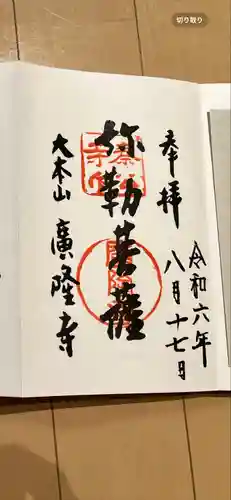 切り取り
奉拝
令和六年
八月十七日
弥勒菩薩
大本山
廣隆寺